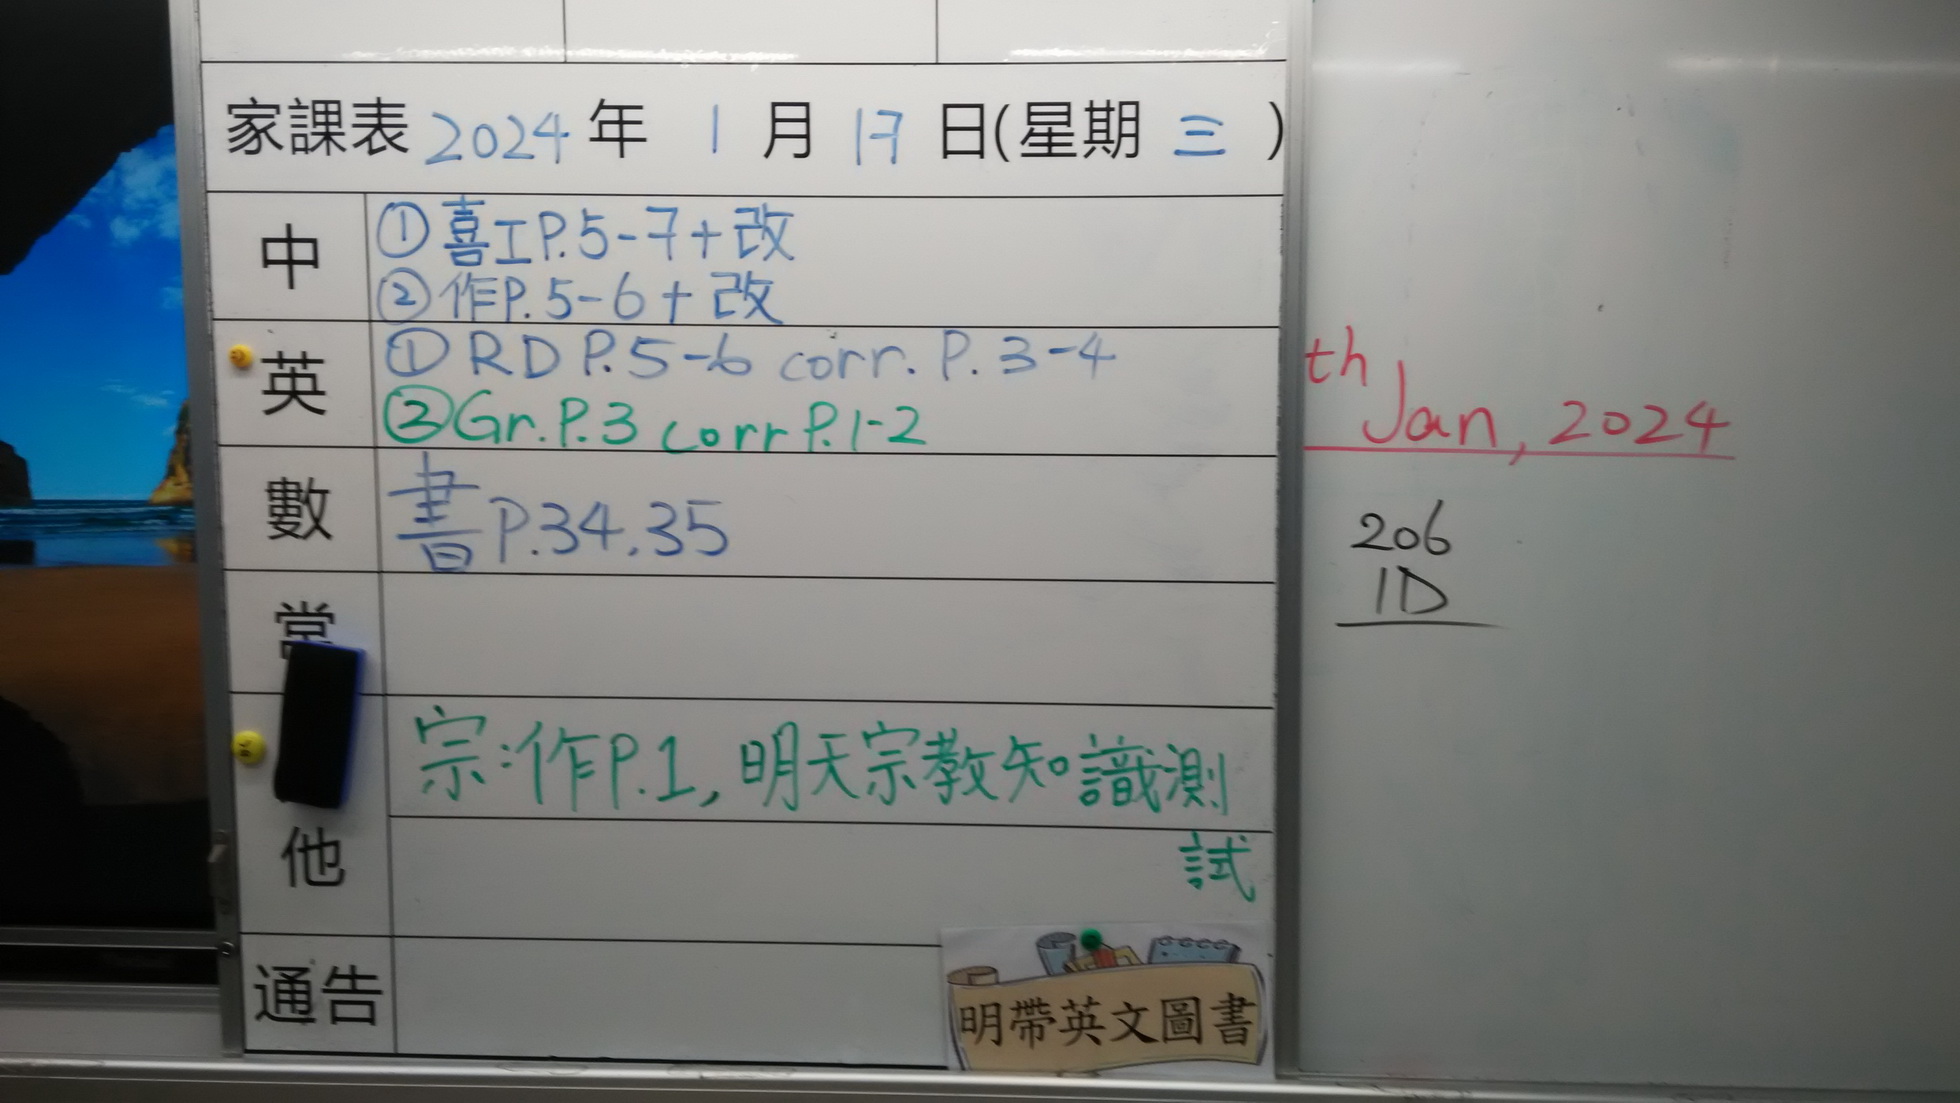 家課表 2024 年 1 月 17 日(星期 三 )
中
①喜工P.5-7+改
②作P.5-6+改
英
①RD P.5-6 corr. P.3-4
②Gr.P.3 corr P.1-2
數
書P.34,35
常
宗:作P.1,明天宗教知識測
試
他
通告
明帶英文圖書
th Jan, 2024
206
1D